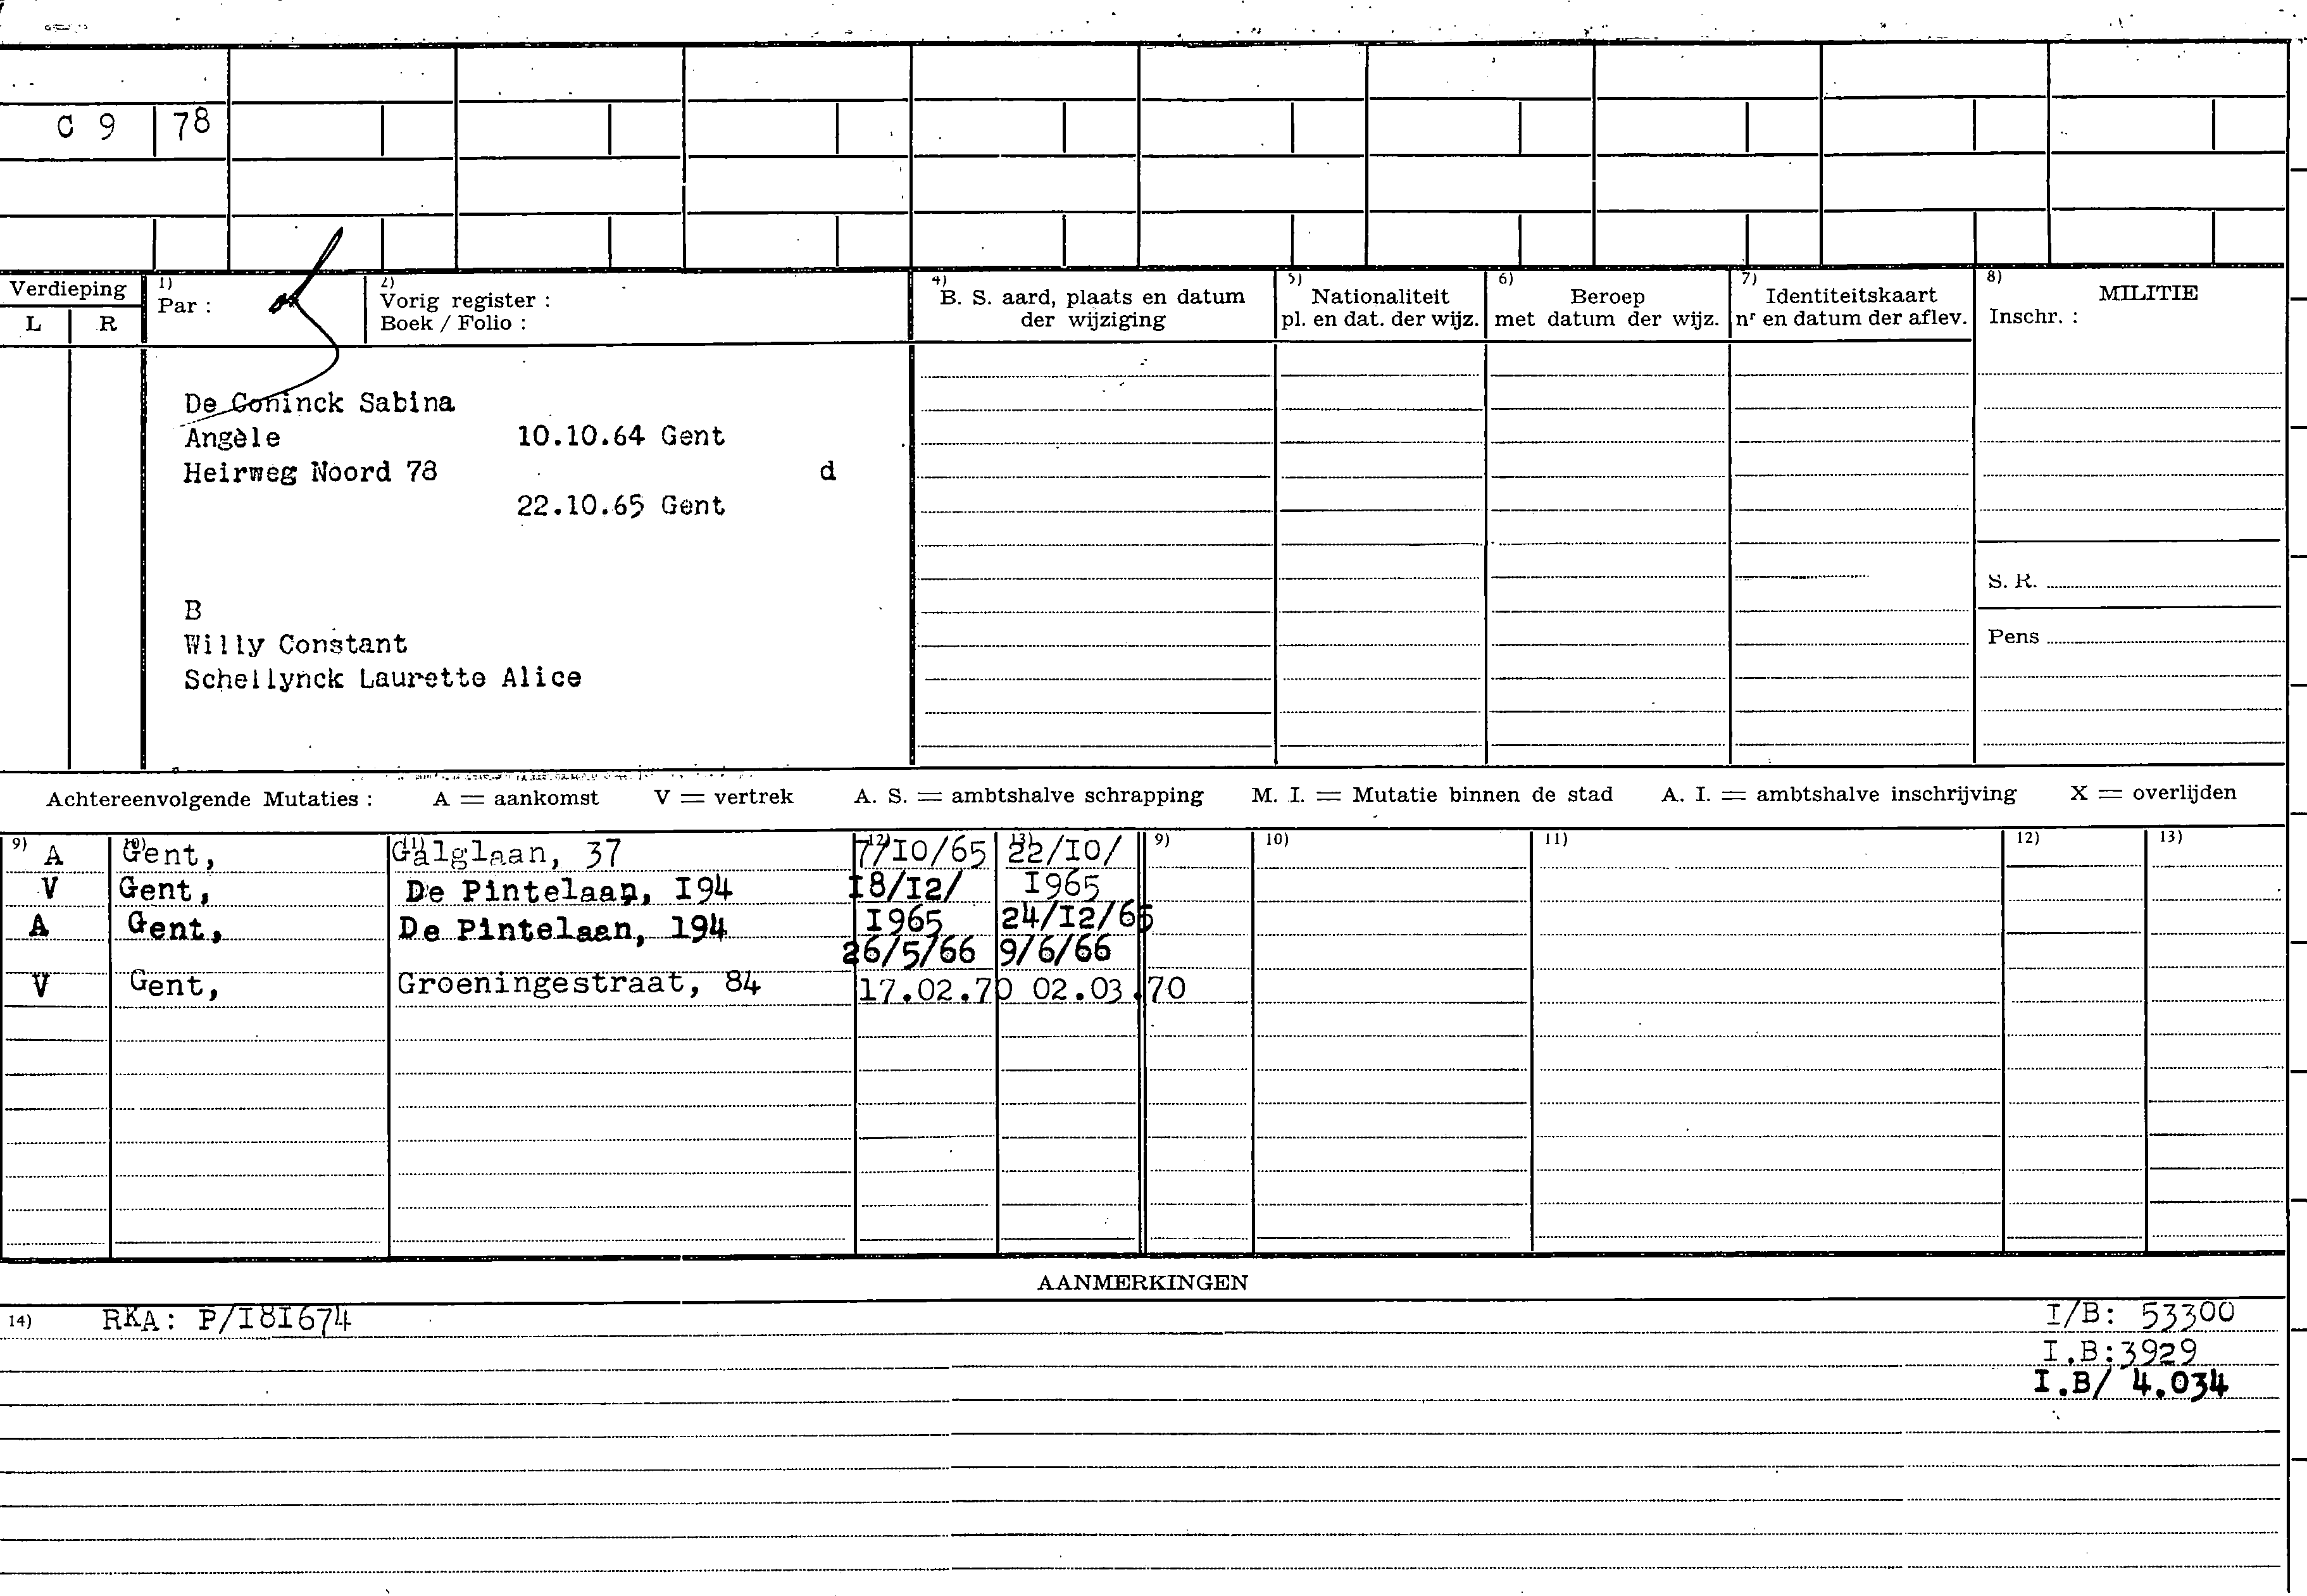 C 9 78
Verdieping
L R
1) Par :
2) Vorig register :
Boek / Folio :
4) B. S. aard, plaats en datum
der wijziging
5) Nationaliteit
pl. en dat. der wijz.
6) Beroep
met datum der wijz.
7) Identiteitskaart
nr en datum der aflev.
8) MILITIE
Inschr. :
De Coninck Sabina
Angèle 10.10.64 Gent
Heirweg Noord 78 d
22.10.65 Gent
B
Willy Constant
Schellynck Laurette Alice
S. R.
Pens
Achtereenvolgende Mutaties : A = aankomst V = vertrek A. S. = ambtshalve schrapping M. I. = Mutatie binnen de stad A. I. = ambtshalve inschrijving X = overlijden
9) 10) 11) 12) 13) 9) 10) 11) 12) 13)
A Gent, Galglaan, 37 7/I0/65 22/I0/
V Gent, De Pintelaan, I94 I8/I2/ I965
A Gent, De Pintelaan, 194 I965 24/I2/65
26/5/66 9/6/66
V Gent, Groeningestraat, 84 17.02.70 02.03.70
AANMERKINGEN
14) RKA: P/I8I674 I/B: 53300
I.B:3929
I.B/ 4.034